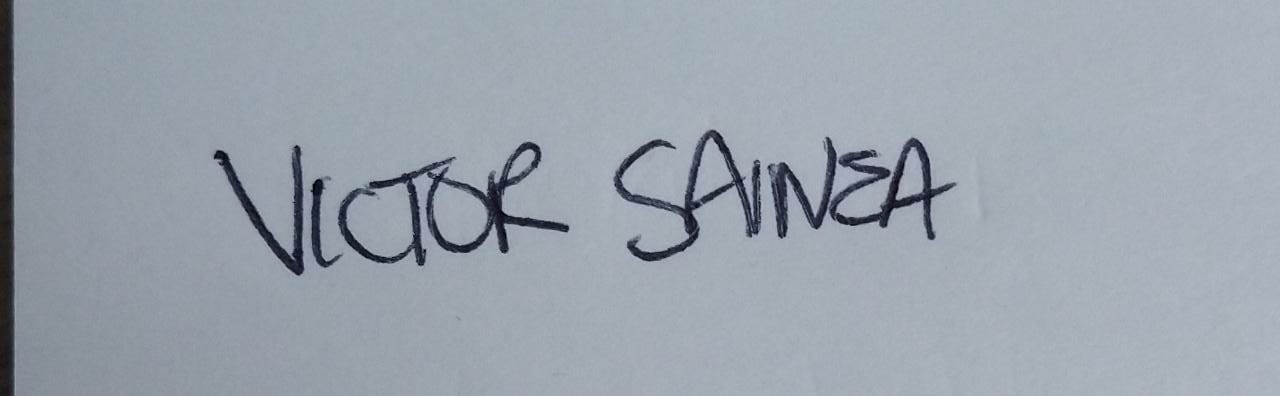 VICTOR SAINEA